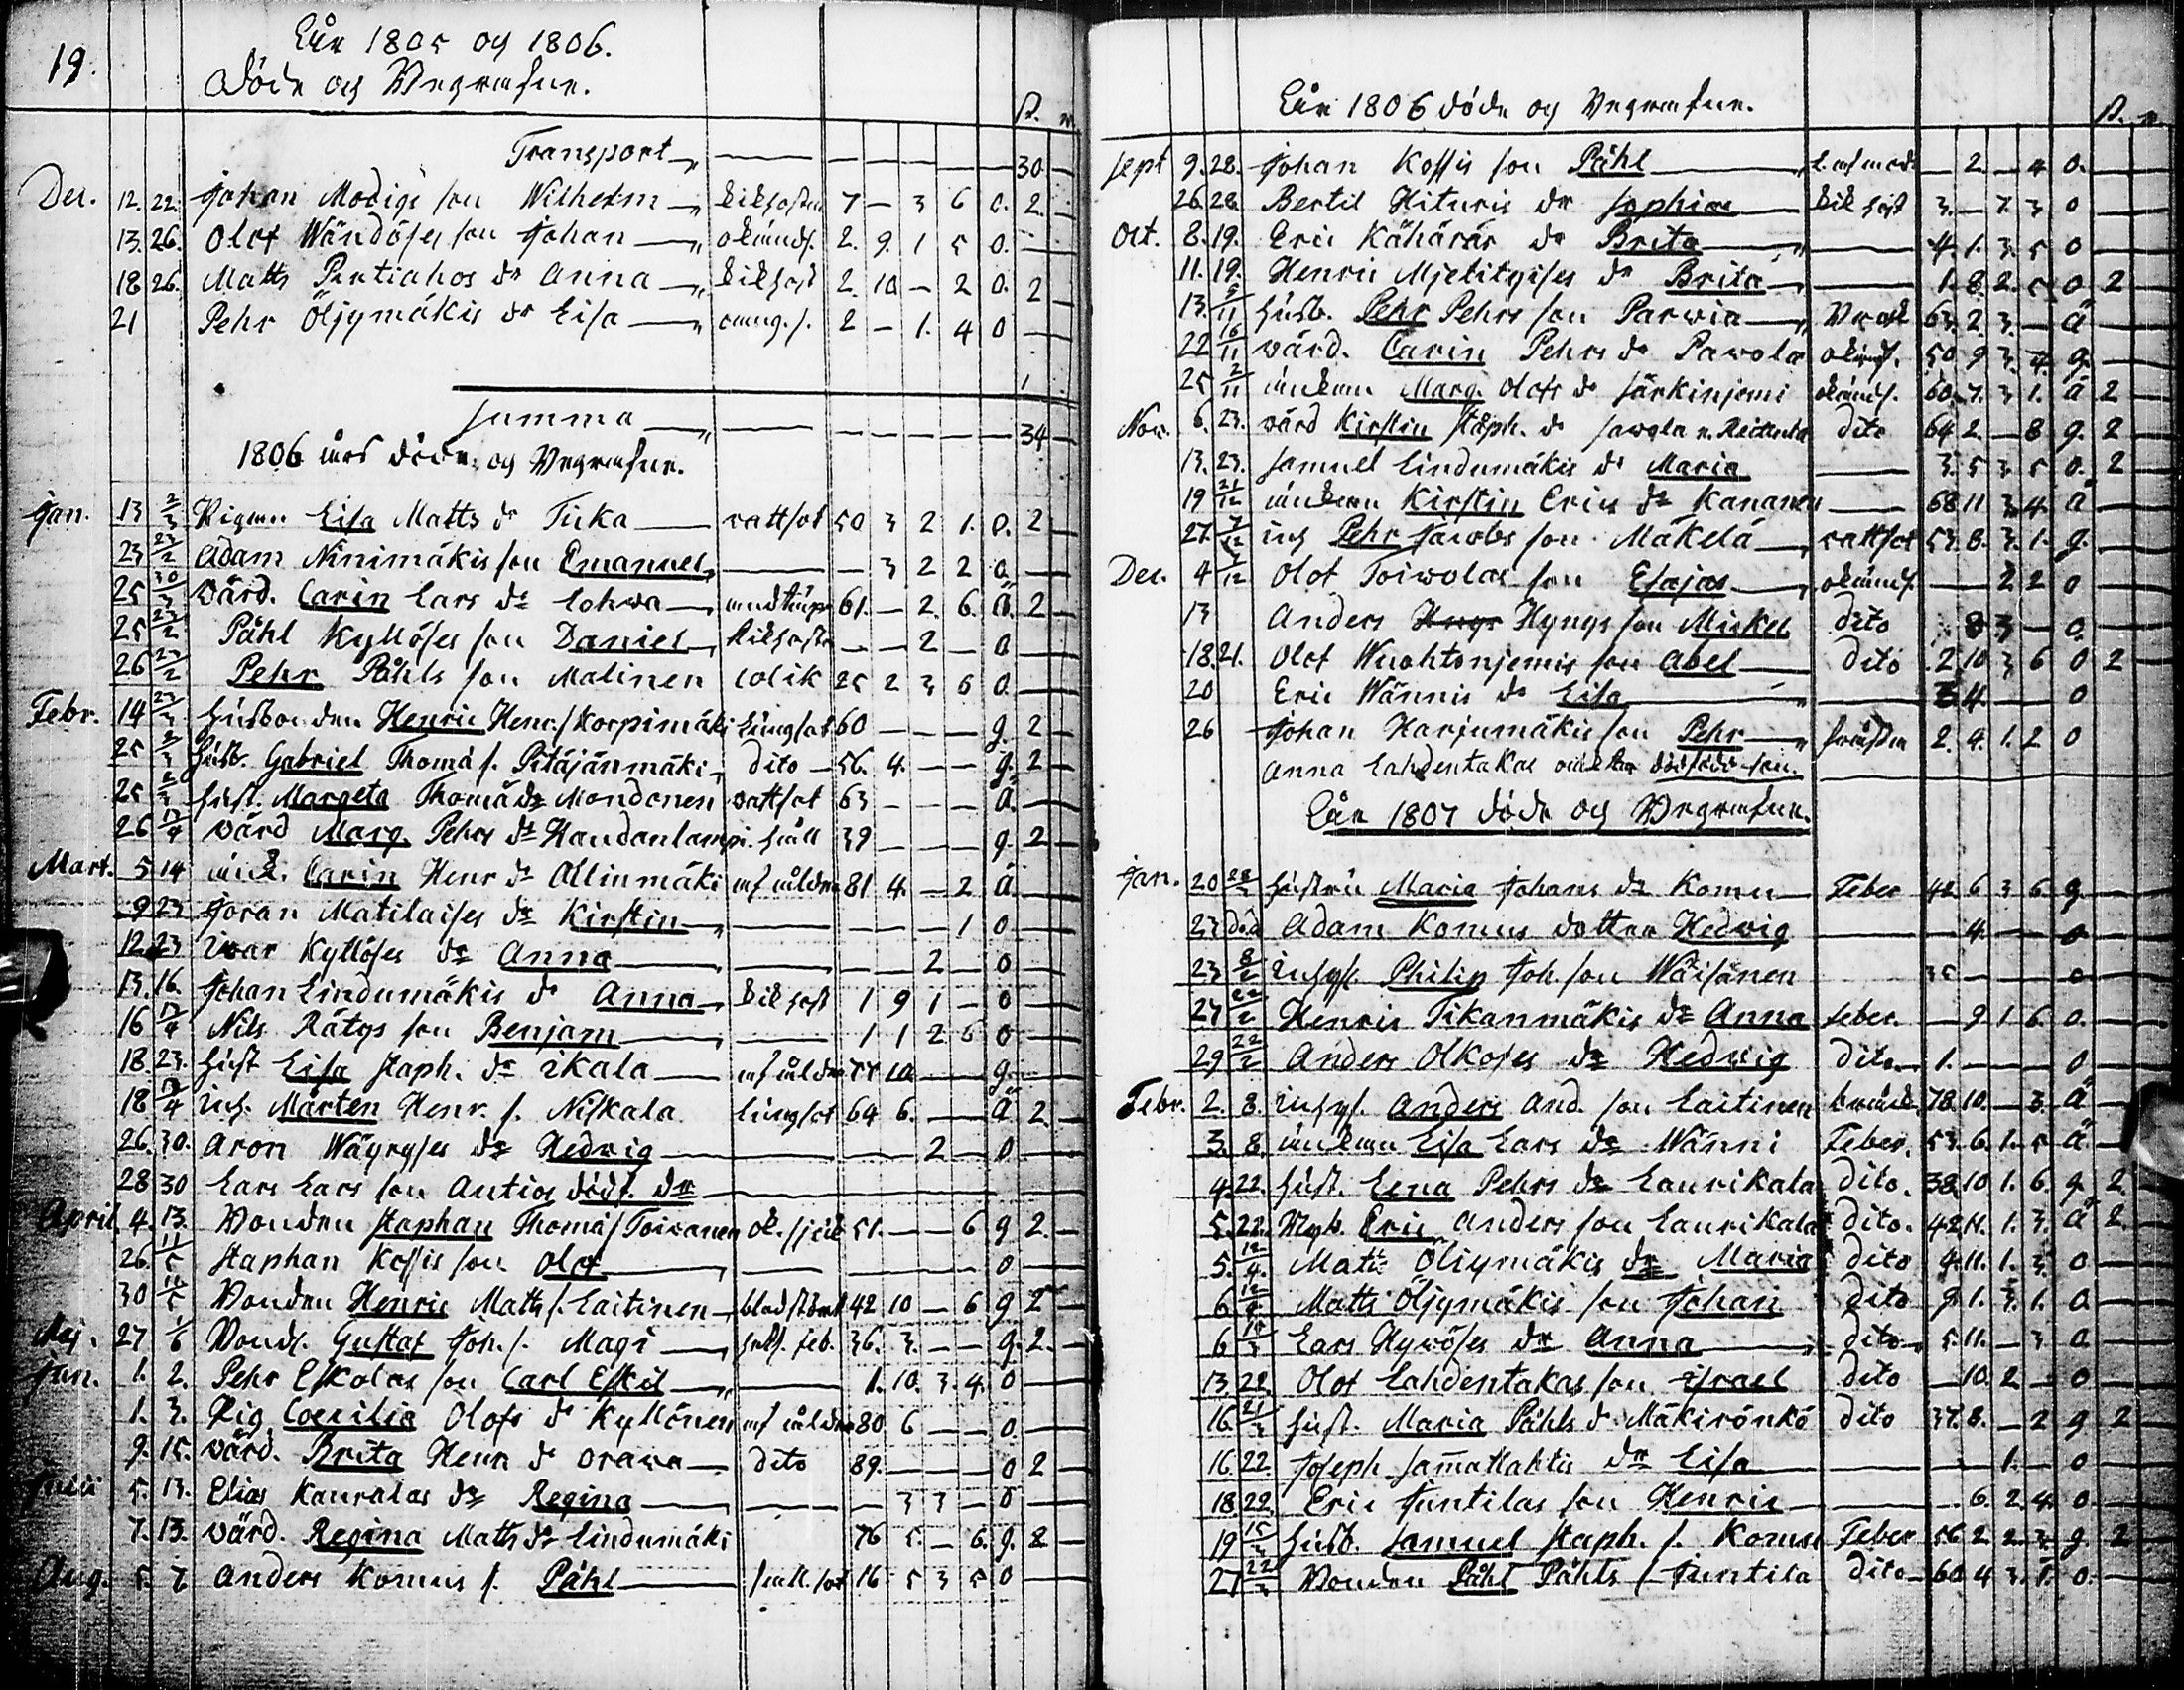 19.
Åhr 1805 og 1806.
Döde og Begrafne.
R.
Transport 30
Dec. 12. 22. Johan Modigs son Wilhelm kikhosta 7 – 3 6 o. 2
13. 26. Olof Wändöses son Johan okänds. 2. 9. 1 5 o.
18 26. Matts Pentiahos dr Anna kikhost 2. 10 – 2 o. 2
21 Pehr Öljymäkis dr Lisa 2 – 1. 4 o
1
Summa 34
1806 års döde og Begrafne.
Jan. 13 2/3 Pigan Lisa Matts dr Tuka rattsot 50 3 2 1. o. 2
23 23/2 Adam Ninimäkis son Emanuel – 3 2 2 o.
25 30/3 värd. Carin Lars dr Lohva andtäpa 61. – 2. 6. ä. 2
25 23/2 Påhl Kyllöses son Daniel kikhosta – – 2 – o
26 23/2 Pehr Påhls son Malinen Colik 25 2 3 6 o.
Febr. 14 23/3 husbonden Henric Henr. s Korpimäki lungsot 60 – – – g. 2
25 2/3 husb. Gabriel Thomä s. Pitäjänmäki dito 56. 4. – – g. 2
25 2/3 hust. Margeta Thomä dr Mondonen rattsot 63 – – – ä.
26 13/4 värd Marg. Pehrs dr Haudanlampi håll 39 – – – g. 2
Mart. 5 14 Carin Henr dr Allinmäki af ålder 81 4. – 2 ä.
9 23 Joran Matilaises dr Kirstin – – – 1 o
12 23 Ivar Kyllöses dr Anna – – 2 – o
13. 16. Johan Lindumäkis dr Anna kikhost 1 9 1 – o
16 13/4 Nils Rätys son Benjam 1 1 2 6 o
18. 23. hust Lisa Staph. dr Ikala af ålder 77 10 – – g.
18 13/4 Inh. Mårten Henr. s. Niskala lungsot 64 6. – – ä 2
26. 30. Aron Wäyryses dr Hedvig – – 2 – o
28 30 Lars Lars son Antios dödf. dr
April 4. 13. Bonden Staphan Thomä s Toivanen 51. – – 6 g 2
26. 11/5 Staphan Kossis son Olof o
30 11/5 Bonden Henric Matts s. Laitinen blodstört 42 10 – 6 g 2
Maj. 27 1/6 Bonds. Gustaf Joh. s. Magi feb. 36. 3. – – g. 2
Jun. 1. 2. Pehr Eskolas son Carl Eskil 1. 10. 3. 4. o
1. 3. Pig. Coecilia Olofs dr Kyllönen af ålder 80 6 – – o.
9. 15. värd. Brita Henr dr Orava dito 89. – – – o 2
Julii 5. 13. Elias Kauralas dr Regina – – 3 3 – o
7. 13. värd. Regina Matts dr Lindumäki 76 5. – 6. g. 2
Aug. 5. 7 Anders Komus s. Påhl 16 5 3 5 o
Åhr 1806 döde og Begrafne.
R.
Sept 9. 28. Johan Kossis son Påhl – 2 – 4 o.
26. 28. Bertil Hituris dr Sophia kik host 3. – 3. 3 o
Oct. 8. 19. Eric Kähäräs dr Brita 4. 1. 3. 5 o
11. 19. Henric Mjetitgises dr Brita 1. 8. 2. 5. o 2
13. 5/11 husb. Pehr Pehrs son Parvia Bråk 63. 2 3. – ä
22 16/11 värd. Carin Pehrs dr Pavola okänds. 50 9 3. 4. g.
25 2/11 änkan Marg. Olofs dr Särkinjemi okänds. 60. 7. 3 1. ä 2
Nov. 6. 23. värd Kirstin Staph. dr Savola n. Reckula dito 64 2. – 8 g. 2
13. 23. Samuel Lindumäkis dr Maria 3. 5 3. 5 o. 2
19 21/12 änkan Kirstin Erics dr Kananen 68 11 3. 4. ä
27. 7/12 inh Pehr Jacobs son Mäkelä rattsot 53. 8. 3. 1. g.
Dec. 4 7/12 Olof Toivolas son Esajas okänds – – 2 2 o
13 Anders Hngs Hyngs son Mickel dito 8 3 – o.
18. 21. Olof Wuohtonjemis son Abel dito 2 10 3 6 o 2
20 Eric Wännis dr Lisa 3 4. – – o
26 Johan Harjumäkis son Pehr 2. 9. 1. 2 o
Anna Lahdentakas oäkta dödfödd son.
Åhr 1807 döde og Begrafne.
Jan. 20 hustru Maria Johans dr Komu Feber 42 6 3 6. g
23 do.d Adam Komus dotter Hedvig – 4. – – o
23 8/2 Inhys. Philip Joh. son Wäisänen 35 – – – o
27 22/2 Henric Tikanmäkis dr Anna feber. – 9 1 6. o.
29 22/2 Anders Olkoses dr Hedvig dito 1. – – – o
Febr. 2. 8. Inhys. Anders And. son Laitinen 78. 10. – 3. ä
3. 8. änkan Lisa Lars dr Wänni Feber. 53. 6. 1. 5 ä
4. 22. hust. Lena Pehrs dr Laurikala dito. 38. 10 1. 6. g. 2.
5. 22. Nyb. Eric Anders son Laurikala dito. 42. 11. 1. 3. ä 2.
5. 12/4. Matts Öljymäkis dr Maria dito 9. 11. 1. 3. o
6 12/4 Matts Öljymäkis son Johan dito 9. 1. 3. 1. o.
6 15/3 Lars Hyvöses dr Anna dito 5. 11. – 3 o.
13. 22. Olof Lahdentakas son Israel dito – 10. 2 – o
16. 21/3 hust. Maria Påhls dr Mäkirönkö dito 37. 8. – 2 g 2
16. 22. Joseph Samallahtis dr Lisa – – 1. – o
18. 22. Eric Juntilas son Henric – 6. 2. 4. o
19 15/3 husb. Samuel Staph. s. Komu Feber 56 2 2 3 g. 2
27 22/3 Bonden Påhl Påhls s Juntila dito 60 4 3. 1. o.